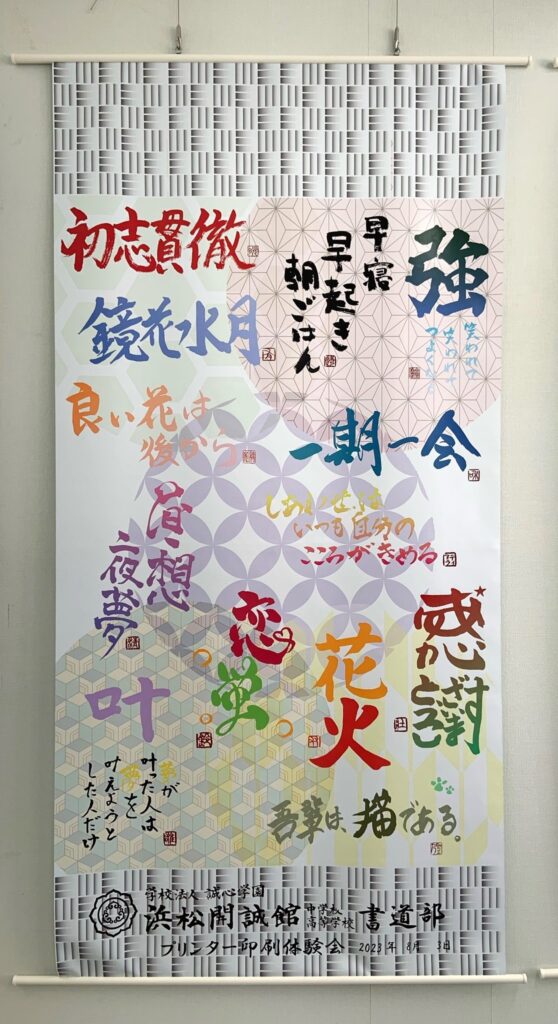 初志貫徹
早寝
早起き
朝ごはん
強
笑われて
笑われて
つよくなる
鏡花水月
良い花は
後から
一期一会
昼想
夜夢
しあわせは
いつも自分の
こころがきめる
恋
蛍
花火
叶
夢が
叶った人は
夢を
叶えようと
した人だけ
吾輩は、猫である。
学校法人 誠心学園
浜松開誠館 中学校 高等学校 書道部
プリンター印刷体験会 2023年 8月 3日